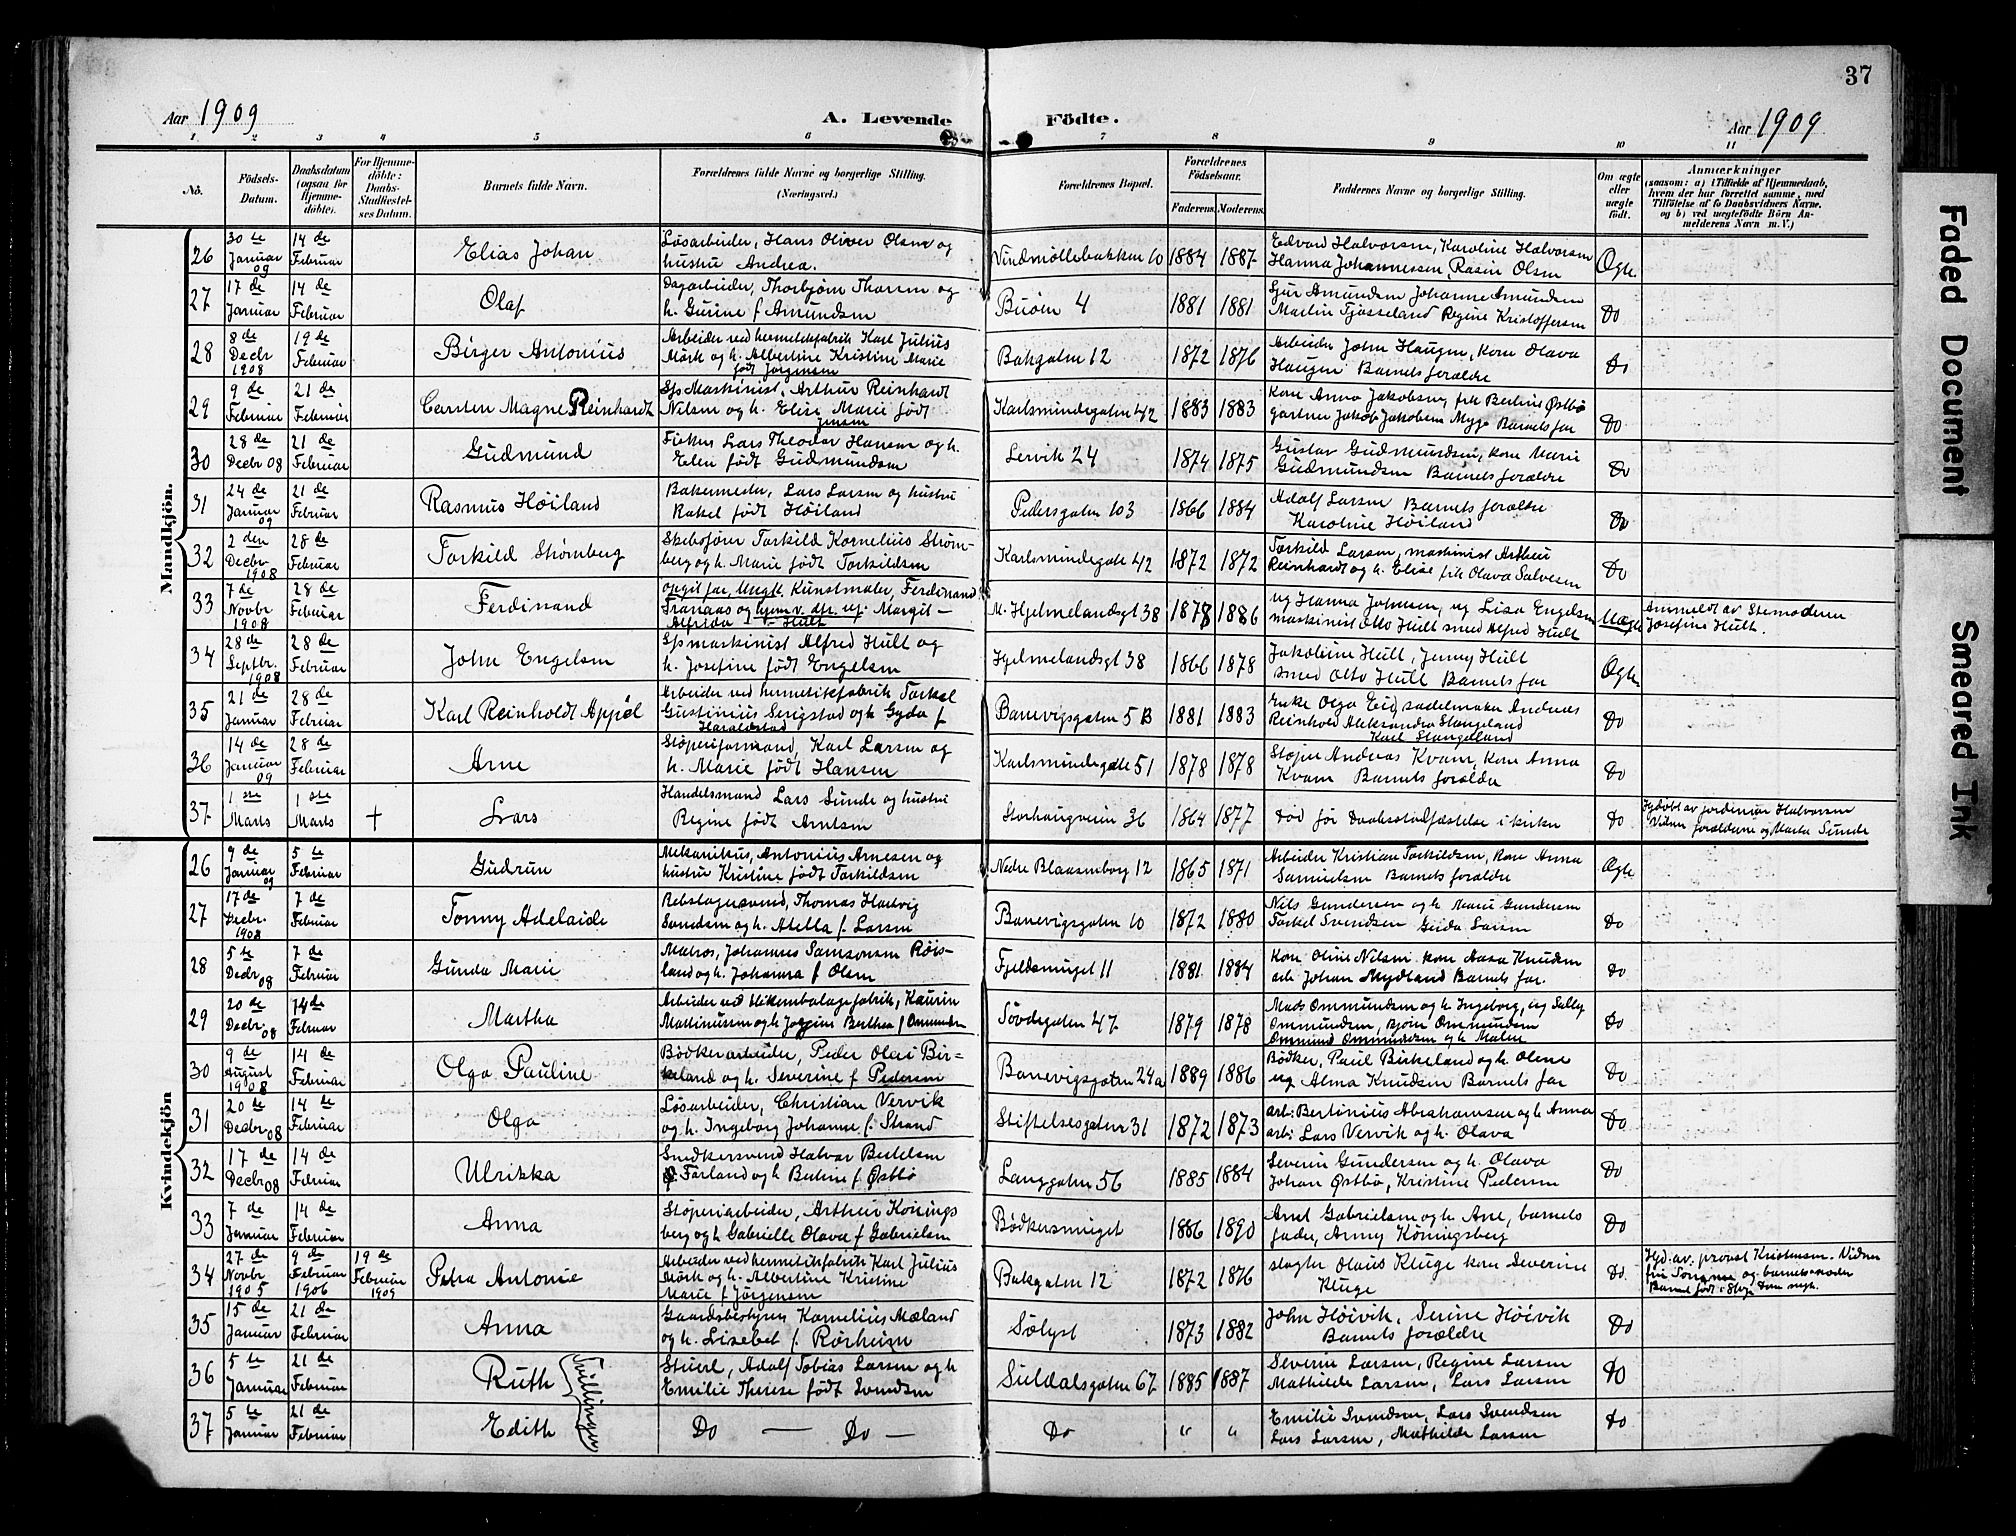 37
Aar 1909
A. Levende Födte.
Aar 1909
1 2 3 4 5 6 7 8 9 10 11
No.
Födsels-Datum.
Daabsdatum (ogsaa for Hjemmedöbte).
For Hjemmedöbte: Daabs-Stadfæstelses Datum.
Barnets fulde Navn.
Forældrenes fulde Navne og borgerlige Stilling. (Næringsvei.)
Forældrenes Bopæl.
Forældrenes Födselsaar.
Faderens. Moderens.
Faddernes Navne og borgerlige Stilling.
Om ægte eller uægte födt.
Anmærkninger
(saasom: a) i Tilfælde af Hjemmedaab, hvem der har forrettet samme, med Tilföielse af to Daabsvidners Navne, og b) ved uægtefödte Börn Anmelderens Navn m. V.)
Mandkjön.
26 30te Januar 09 14de Februar Elias Johan Løsarbeider, Hans Oliver Olsen og hustru Andrea. Vindmøllebakken 10 1884 1887 Edvard Halvorsen, Karoline Halvorsen Hanna Johannessen, Rasin Olsen Ægte
27 17de Januar 14de Februar Olaf Dagarbeider, Thorbjørn Thorsen og h. Gurine f Amundsen Buøen 4 1881 1881 Sjur Amundsen Johanne Amundsen Martin Tjøsseland Regine Kristoffersen Do
28 8de Decbr 1908 19de Februar Birger Antonius Arbeider ved hermetikfabrik Karl Julius Mörk og h. Albertine Kristine Marie født Jørgensen Bakgaten 12 1872 1876 Arbeider John Haugen, kone Olava Haugen Barnets forældre Do
29 9de Februar 21de Februar Carsten Magne Reinhardt Sps Maskinist, Arthur Reinhardt Nilsen og h. Elise Marie født Jensen Karlsmindegaten 42 1883 1883 Kone Anna Jakobsen, frk Bertine Østbø gartner Jakob Jakobsen Myge Barnets far Do
30 28de Decbr 08 21de Februar Gudmund Fisker Lars Theodor Hansen og h. Elen født Gudmundsen Lervik 24 1874 1875 Gustav Gudmundsen, kone Marie Gudmundsen Barnets forældre Do
31 24de Januar 09 21de Februar Rasmus Høiland Bakermester, Lars Larsen og hustru Rakel født Høiland Pedersgaten 103 1866 1884 Adolf Larsen Barnets forældre Karoline Høiland Do
32 2den Decbr 1908 28de Februar Torkild Strømberg Skibsfører Torkild Kornelius Strømberg og h. Marie født Torkildsen Karlsmindegate 42 1872 1872 Torkild Larsen, maskinist Arthur Reinhardt og h. Elise frk Olava Salvesen Do
33 7de Novbr 1908 28de Februar Ferdinand opgit far Ungk. Kunstmaler, Ferdinand Franaas og hjemv. dtr. ug. Margit Alfrida Hult N. Hjelmelandsgt 38 1878 1886 ug Hanna Johnsen, ug Lisa Engelsen maskinist Otto Hult smed Alfred Hult Uægte Anmeldt av Stemoderen Josefine Hult.
34 28de Septbr. 1908 28de Februar John Engelsen Sps maskinist Alfred Hult og h. Josefine født Engelsen Hjelmelandsgt 38 1866 1878 Jakobine Hult, Jenny Hult smed Otto Hult Barnets far Ægte
35 21de Januar 28de Februar Karl Reinholdt Appøl Arbeider ved hermetikfabrik Torkel Gustinius Serigstad og h Gyda f Haraldstad Banevigsgaten 5B 1881 1883 Enke Olga Eid, sadelmaker Andreas Reinhold Aleksandra Stangeland Karl Stangeland Do
36 14de Januar 09 28de Februar Arne Støperiformand, Karl Larsen og h. Marie født Hansen Karlsmindegate 51 1878 1878 Støper Andreas Kvam, kone Anna Kvam Barnets forældre Do
37 1ste Marts 1ste Marts + Lars Handelsmand Lars Sunde og hustru Regine født Arntsen Storhaugveien 36 1864 1877 Død før Daabsstadfæstelse i kirken Do Hjdøbt av jordmor Halvorsen Vidner forældrene og Marta Sunde
Kvindekjön
26 9de Januar 09 5te Februar Gudrun Mekanikus, Antonius Arnesen og hustru Kristine født Torkildsen Nedre Blaasenborg 12 1865 1871 Arbeider Kristian Torkildsen, kone Anna Samuelsen Barnets forældre Ægte
27 17de Decbr. 1908 7de Februar Tonny Adelaide Rebslagersvend, Thomas Hartvig Svendsen og h. Atella f. Larsen Banevigsgaten 10 1872 1880 Nils Gundersen og h Marie Gundersen Torkel Svendsen Guida Larsen Do
28 5te Decbr 08 7de Februar Gunda Marie Matros, Johannes Samsonsen Røisland og h. Johanna f Olsen Fjeldsmuget 11 1881 1884 Kone Oline Nilsen kone Aasa Knudsen arb Johan Mydland Barnets far. Do
29 20de Decbr 08 14de Februar Martha Arbeider ved blikemballagefabrik, Kaurin Martinussen og h Jorgine Berthea f Ommundsen Tøvdegaten 47 1879 1878 Mads Ommundsen og h. Ingeborg, ug Sally Ommundsen, Bjørn Ommundsen Ommund Ommundsen og h. Malene Do
30 9de August 1908 14de Februar Olga Pauline Bødkerarbeider, Peder Olai Birkeland og h. Severine f Pedersen Banevigsgaten 24a 1889 1886 Bødker, Paul Birkeland og h. Olene ug Alma Knudsen Barnets far Do
31 20de Decbr 08 14de Februar Olga Løsarbeider, Christian Vervik og h. Ingeborg Johanne f. Strand Stiftelsesgaten 31 1872 1873 arb: Bertinius Abrahamsen og h Anna arb: Lars Vervik og h. Olava Do
32 17de Decbr 08 14de Februar Ulrikka Snedkersvend Halvar Bertelsen Førland og h Bertine f. Østbø Langgaten 56 1885 1884 Severin Gundersen og h. Olava Johan Østbø, Kristine Pedersen Do
33 7de Januar 14de Februar Anna Støperiarbeider, Arthur Königsberg og h Gabrielle Olava f Gabrielsen Bødkersmuget 1886 1890 Anel Gabrielsen og h. Ane, barnets fader, Anny Königsberg Do
34 27de Novbr 1905 9de Februar 1906 19de Februar 1909 Petra Antonie Arbeider ved hermetikfabrik Karl Julius Mörk og h. Albertine Kristine Marie f Jörgensen Bakgaten 12 1872 1876 slagter Olaus Kluge kone Severine Kluge Do. Hjd. av. provst Kristensen. Vidner og barnets moder
35 15de Januar 21de Februar Anna Gaardsbestyrer Kornelius Mæland og h. Lisebet f. Rørheim Solyst 1873 1882 John Høivik, Serine Høivik Barnets forældre Do
36 5te Januar 21de Februar Ruth Stuert, Adolf Tobias Larsen og h Emilie Therese født Svendsen Suldalsgaten 67 1885 1887 Severin Larsen, Regine Larsen Mathilde Larsen, Lars Larsen Do
Tvillinger
37 5te Januar 21de Februar Edith Do — Do — Do " " Emilie Svendsen, Lars Svendsen Lars Larsen, Mathilde Larsen Do
Faded Document
Smeared Ink